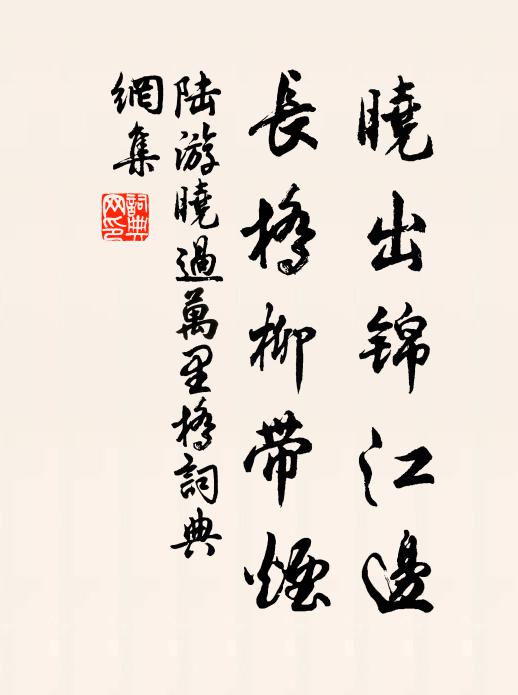 曉出錦江邊
長橋柳帶煙
陸游曉過萬里橋詞典
網集
詞典
网印